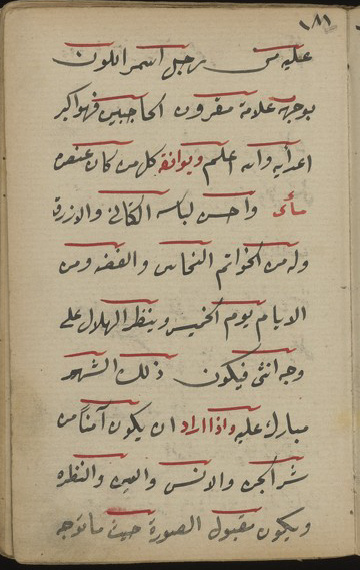 ١٨١
عليه من رجل اسمر اللون
بوجهه علامة مقرون الحاجبين فهو اكبر
اعدائه والله اعلم ويوافقه كل من كان عنصره
مائى واحسن لباسه الكتانى والازرق
وله من الخواتم النحاس والفضه ومن
الايام يوم الخميس وينظر الهلال على
وجه انثى فيكون ذلك الشهر
مبارك عليه واذا اراد ان يكون آمنا من
شر الجن والانس والعين والنظره
ويكون مقبول الصورة حيث ما توجه